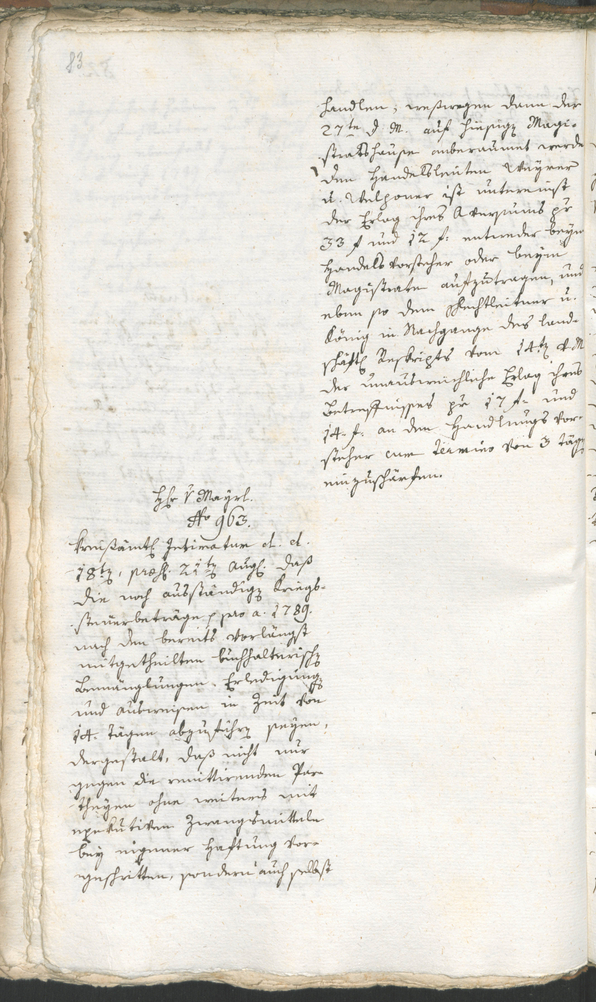 83
handlen; weßwegen dann der
27te d. M. auf hiesigem Magi-
stratshause anberaumet werde
den Handelsleuten Mayrer
u. Welponer ist untereinst
der Erlag ihres Aversums pr
33 f und 12 f: entweder beym
Handelsvorsteher oder beym
Magistrate aufzutragen, und
eben so dem Rechtleitner u.
König in Nachgange des land-
schäftl. Reskripts vom 14ten d. M
der unausweichliche Erlag ihres
Betreffnisses pr 17 f: und
14. f: an den Handlungs Vor-
steher cum Termino von 3 Täg
einzuschärfen.
Hr v Mayrl.
No 963.
Kreisämtl. Intimatum d. d.
18ten, præs. 21ten Aug. daß
die noch ausständigen Kriegs-
steuerbeträge pro a. 1789.
nach den bereits vorlängst
mitgetheilten buchhalterischen
Bemänglungen. Erledigung
und ausweisen in Zeit von
14. Tagen abzuführen seyen,
dergestalt, daß nicht nur
gegen die renittirenden Par-
theyen ohne weiters mit
exekutiven Zwangsmitteln
bey eigener Haftung vor-
geschritten, sondern auch selbst